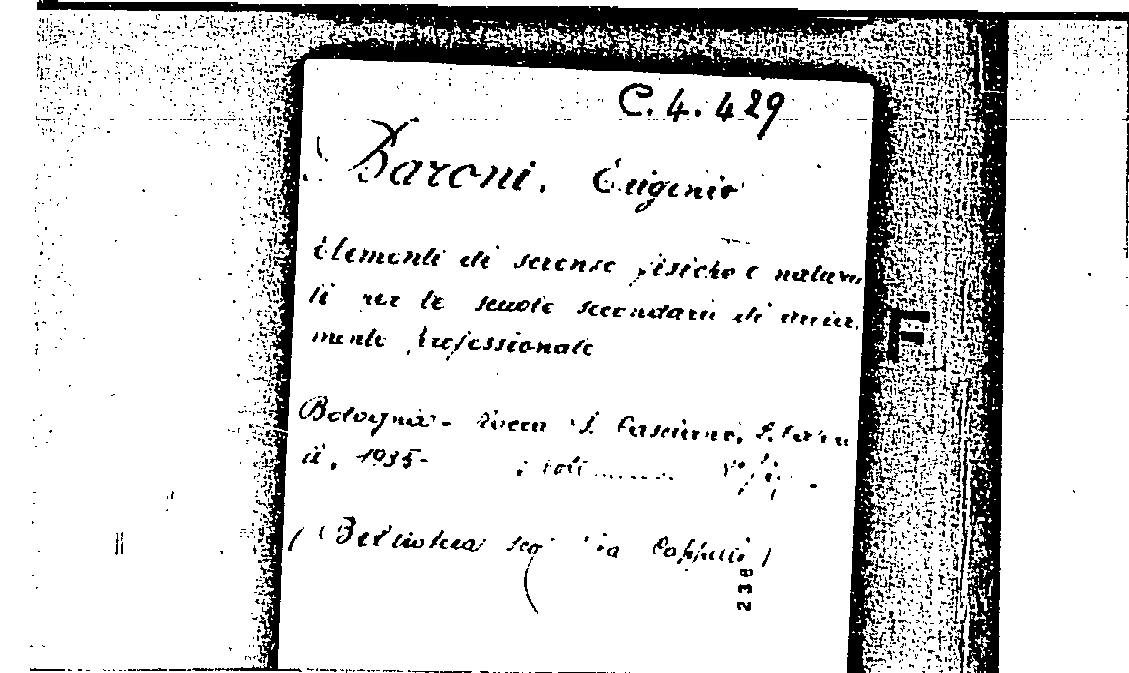 C.4.429
Baroni, Eugenio
Elementi di scienze fisiche e natura
li per le scuole secondarie di avvia
mento professionale
Bologna - Rocca S. Casciano,
1935-
(Biblioteca Cappelli)
238